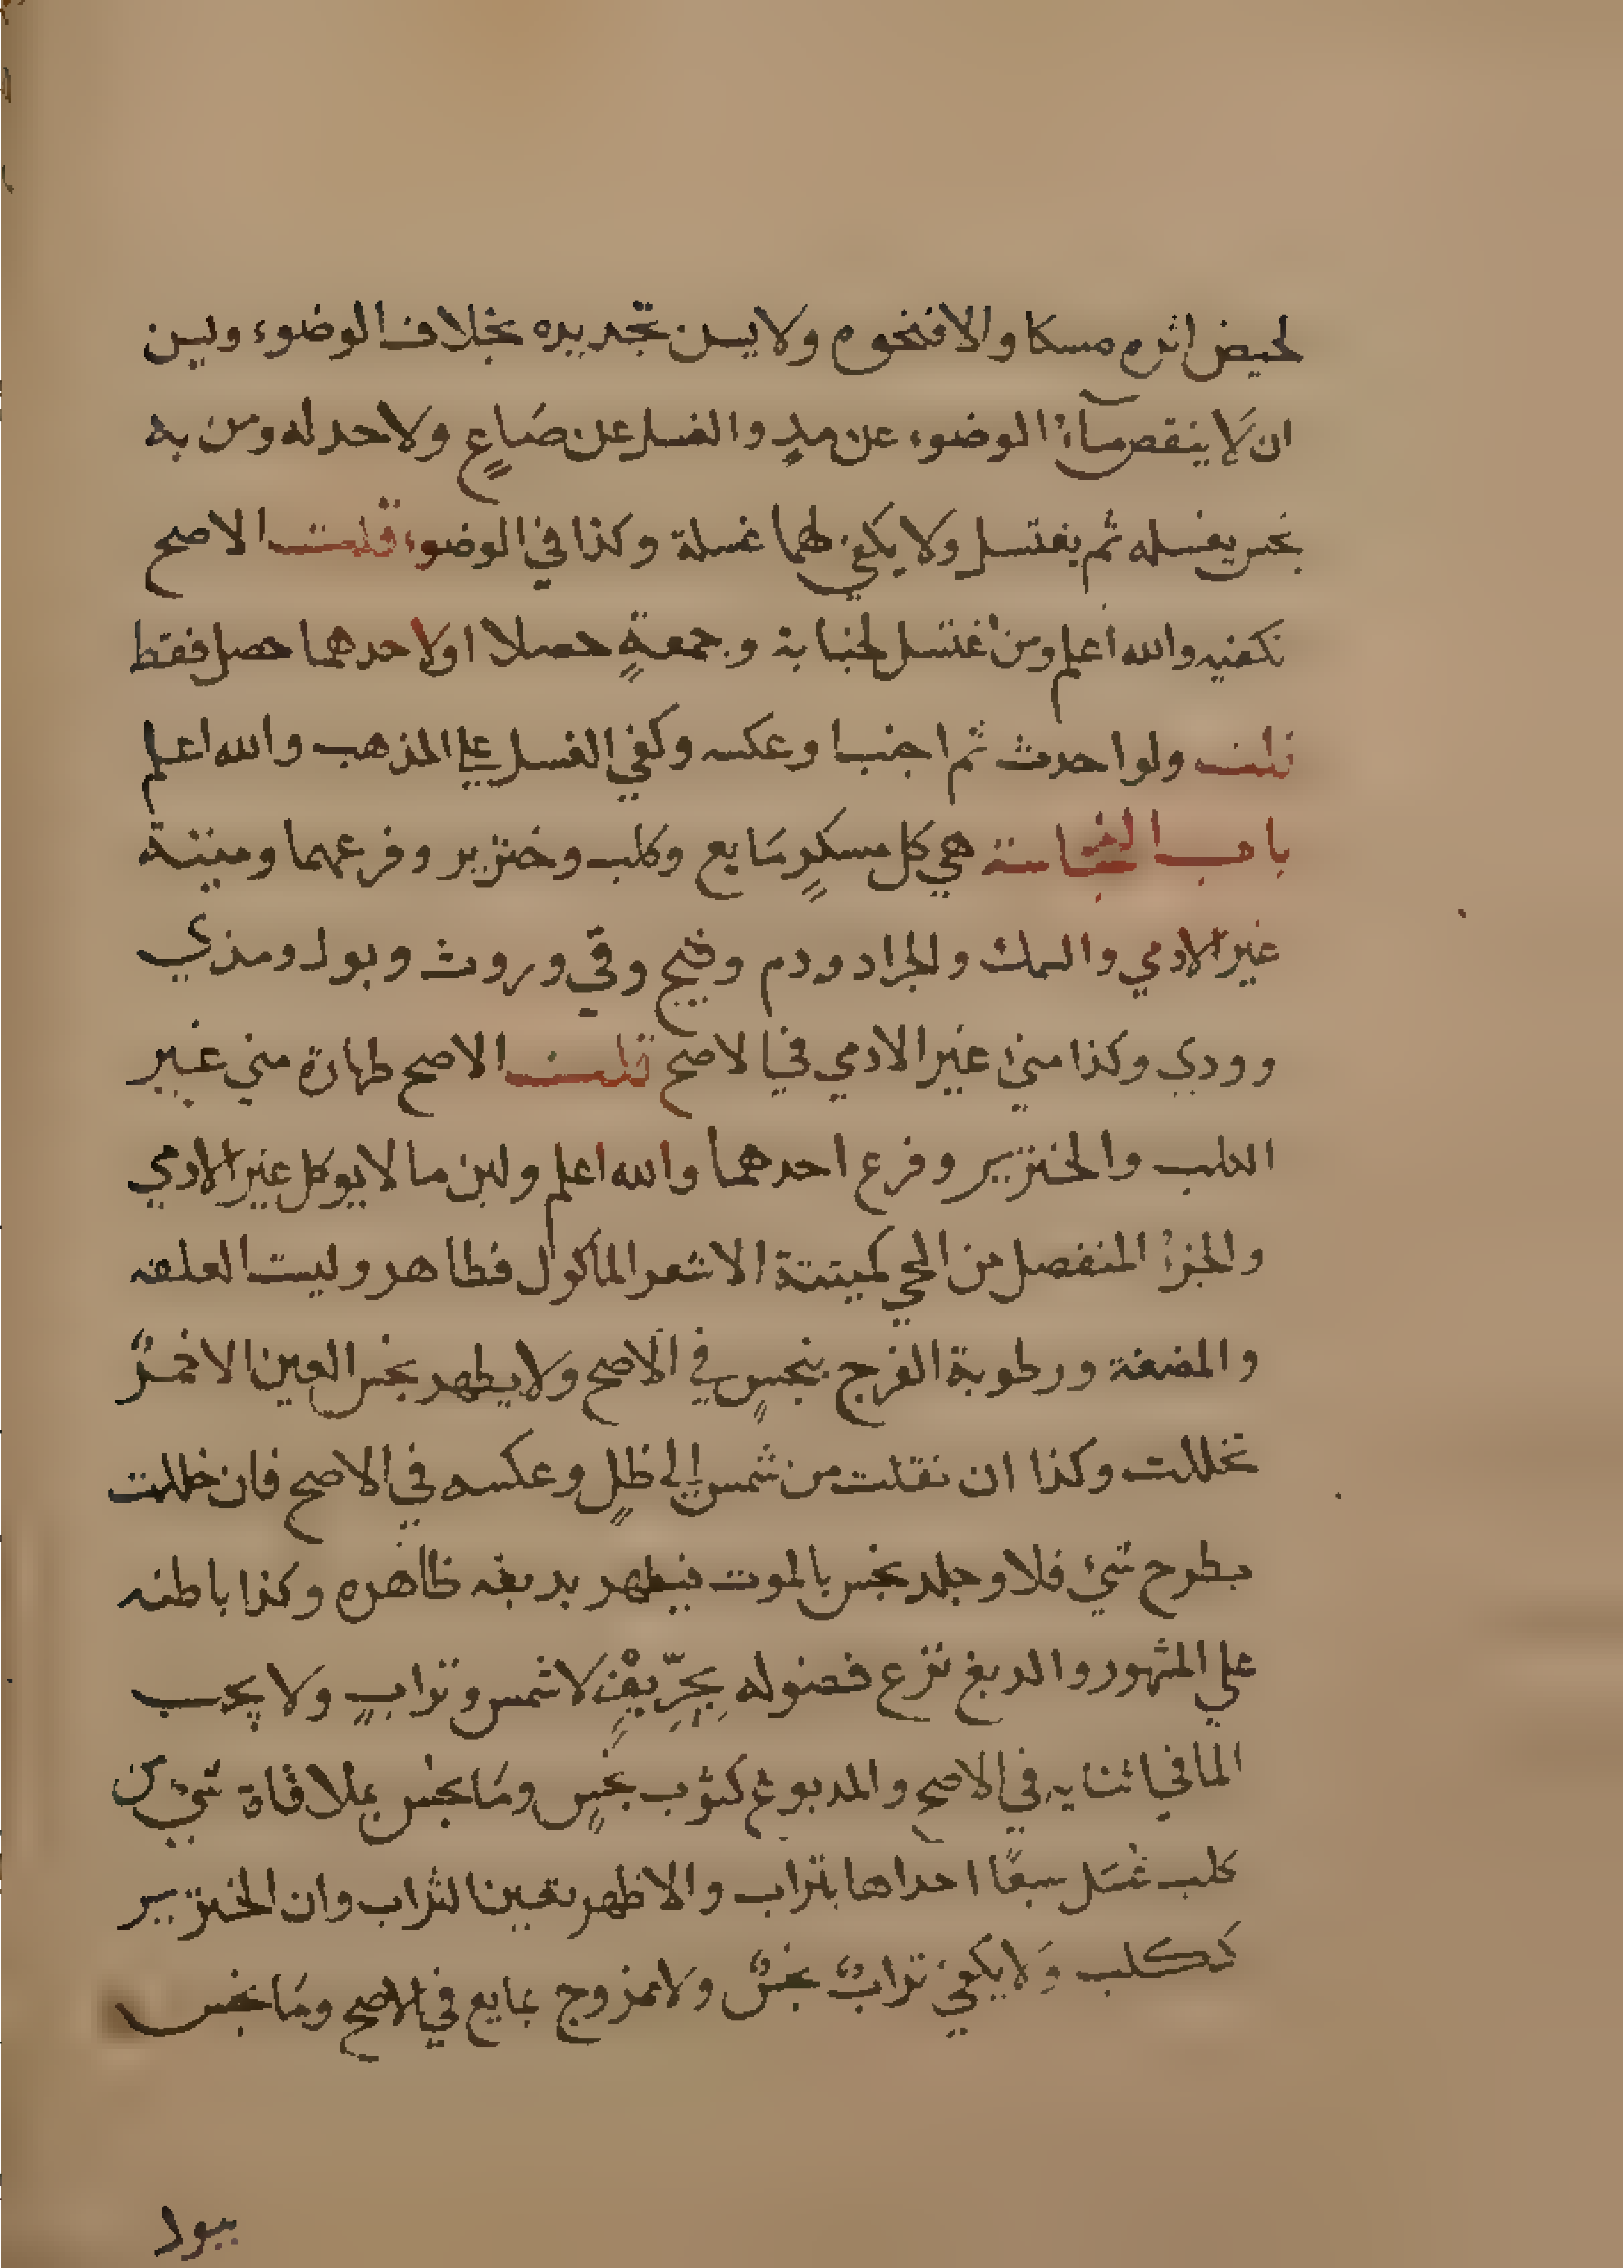 لحيض اثره مسكا والا فنحوه ولا يسن تجديده بخلاف الوضوء ويسن
ان لا ينقص مآء الوضوء عن مدٍ والغسل عن صَاعٍ ولا حد له ومن به
نجس يغسله ثم يغتسل ولا يكفي لهما غسلة وكذا في الوضوء قلت الاصح
تكفيه والله اعلم ومن اغتسل لجنابة وجمعةٍ حصلا او لاحدهما حصل فقط
قلت ولو احدث ثم اجنب او عكسه وكفي الغسل علي المذهب والله اعلم
باب النجاسة هي كل مسكرٍ مَايع وكلب وخنزير وفرعهما وميتة
غير الادمي والسمك والجراد ودم وقيح وقي وروث وبول ومذي
وودي وكذا مني غير الادمي في الاصح قلت الاصح طهارة مني غير
الكلب والخنزير وفرع احدهما والله اعلم ولبن ما لا يوكل غير الادمي
والجزءُ المنفصل من الحي كميتتة الا شعر المأكول فطاهر وليست العلقه
والمضغة ورطوبة الفرج بنجسٍ في الاصح ولا يطهر نجس العين الا خمرٌ
تخللت وكذا ان نقلت من شمس إلي ظلٍ وعكسه في الاصح فان خللت
بطرح شيء فلا وجلد نجس بالموت فيطهر بدبغه ظاهره وكذا باطنه
علي المشهور والدبغ نزع فضوله بِحِرِّيفٍ لا شمس وترابٍ ولا يجب
الما في اثنايه في الاصح والمدبوغ كثوب نجسٍ ومَا نجس بملاقاة شيء من
كلب غُسَل سبعًا احداها بتراب والاظهر تعين التراب وان الخنزير
ككلب وَلا يكفي ترابٌ نجسٌ ولا ممزوج بمايع في الاصح ومَا نجس
ببول